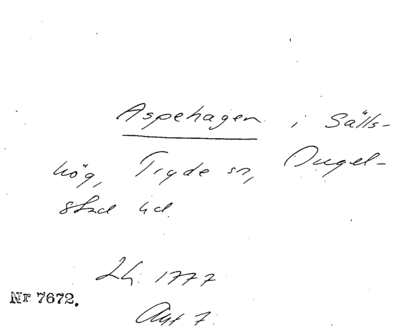 Aspehagen i Sälls-
hög, Tryde sn, Ingel-
stad hd.
Lh. 1777
Akt 7.
Nr 7672.